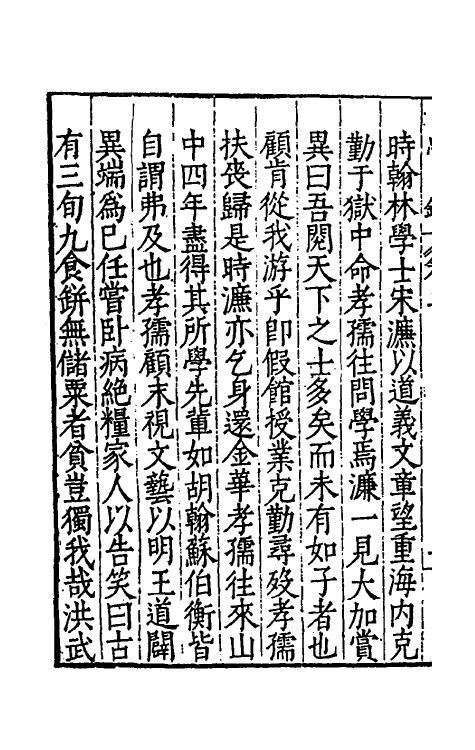 時翰林學士宋濂以道義文章望重海内克
勤于獄中命孝孺往問學焉濂一見大加賞
異曰吾閱天下之士多矣而未有如子者也
顧肯從我游乎即假館授業克勤尋歿孝孺
扶喪歸是時濂亦乞身還金華孝孺往來山
中四年盡得其所學先軰如胡翰蘇伯衡皆
自謂弗及也孝孺顧末視文藝以明王道闢
異端爲已任嘗卧病絶糧家人以告笑曰古
有三旬九食缾無儲粟者貧豈獨我哉洪武